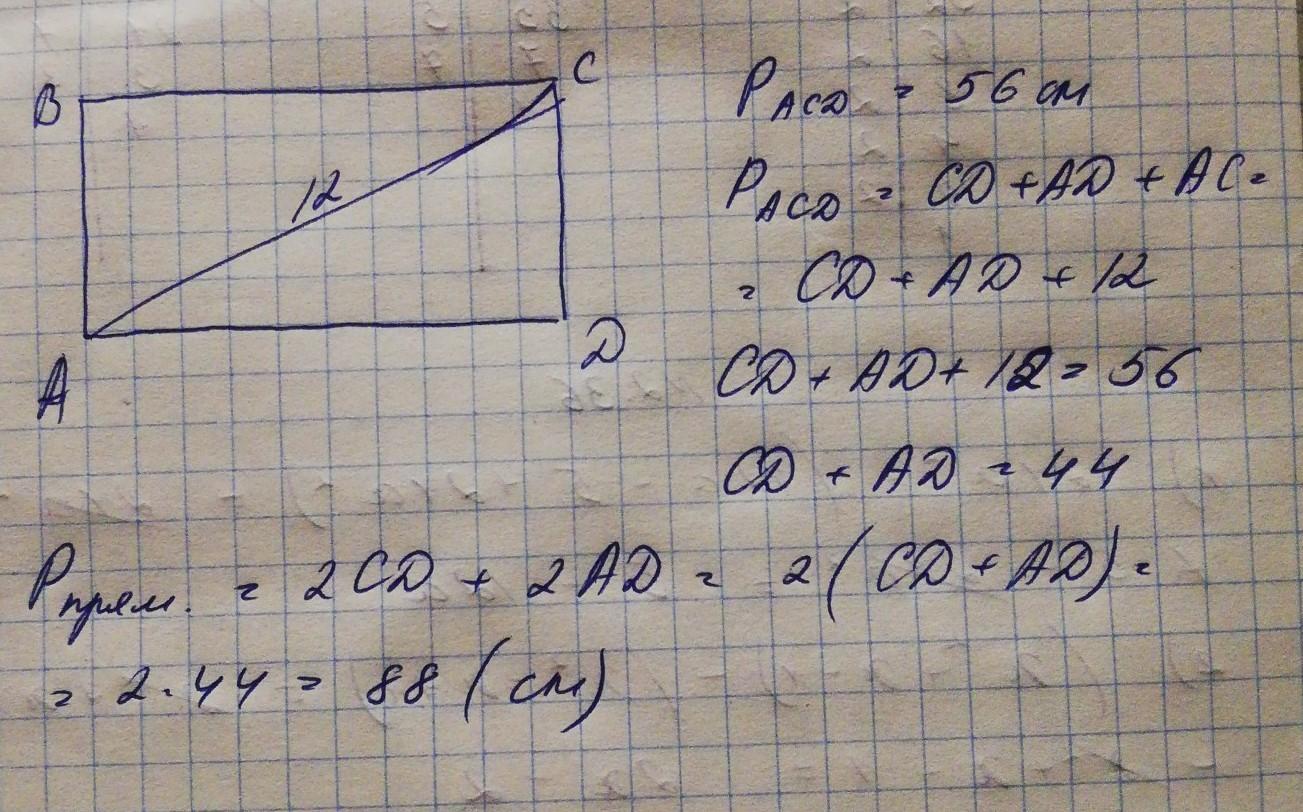 B
C
12
A
D
P ACD = 56 см
P ACD = CD + AD + AC =
= CD + AD + 12
CD + AD + 12 = 56
CD + AD = 44
P прям. = 2CD + 2AD = 2(CD + AD) =
= 2·44 = 88 (см)